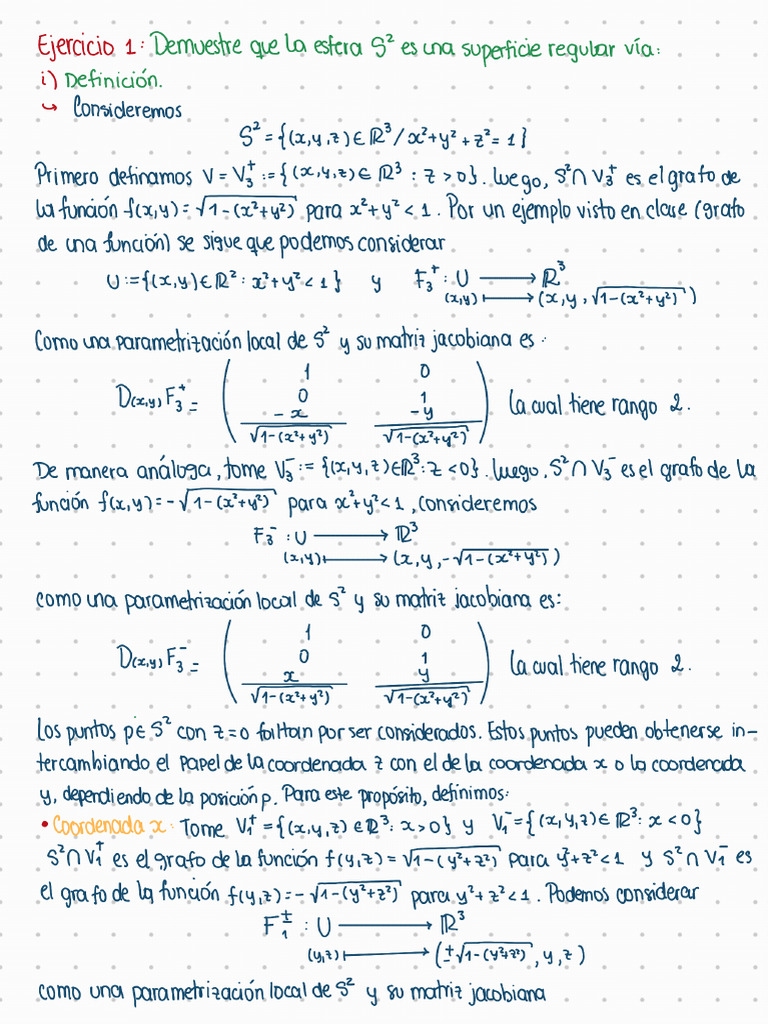 Ejercicio 1: Demuestre que la esfera S² es una superficie regular vía:
i) Definición.
↪ Consideremos
S² = {(x,y,z) ∈ ℝ³ / x²+y²+z² = 1}
Primero definamos V = V₃⁺ := {(x,y,z) ∈ ℝ³ : z > 0}. Luego, S² ∩ V₃⁺ es el grafo de
la función f(x,y) = √(1-(x²+y²)) para x²+y² < 1. Por un ejemplo visto en clase (grafo
de una función) se sigue que podemos considerar
U := {(x,y) ∈ ℝ² : x²+y² < 1} y F₃⁺ : U ⟶ ℝ³
(x,y) ⟼ (x, y, √(1-(x²+y²)))
Como una parametrización local de S² y su matriz jacobiana es:
1 0
D(x,y) F₃⁺ = 0 1 la cual tiene rango 2.
-x/√(1-(x²+y²)) -y/√(1-(x²+y²))
De manera análoga, tome V₃⁻ := {(x,y,z) ∈ ℝ³ : z < 0}. Luego, S² ∩ V₃⁻ es el grafo de la
función f(x,y) = -√(1-(x²+y²)) para x²+y² < 1, consideremos
F₃⁻ : U ⟶ ℝ³
(x,y) ⟼ (x, y, -√(1-(x²+y²)))
como una parametrización local de S² y su matriz jacobiana es:
1 0
D(x,y) F₃⁻ = 0 1 la cual tiene rango 2.
x/√(1-(x²+y²)) y/√(1-(x²+y²))
Los puntos p ∈ S² con z=0 faltan por ser considerados. Estos puntos pueden obtenerse in-
tercambiando el papel de la coordenada z con el de la coordenada x o la coordenada
y, dependiendo de la posición p. Para este propósito, definimos:
• Coordenada x: Tome V₁⁺ = {(x,y,z) ∈ ℝ³ : x > 0} y V₁⁻ = {(x,y,z) ∈ ℝ³ : x < 0}
S² ∩ V₁⁺ es el grafo de la función f(y,z) = √(1-(y²+z²)) para y²+z² < 1 y S² ∩ V₁⁻ es
el grafo de la función f(y,z) = -√(1-(y²+z²)) para y²+z² < 1. Podemos considerar
F₁^± : U ⟶ ℝ³
(y,z) ⟼ (±√(1-(y²+z²)), y, z)
como una parametrización local de S² y su matriz jacobiana